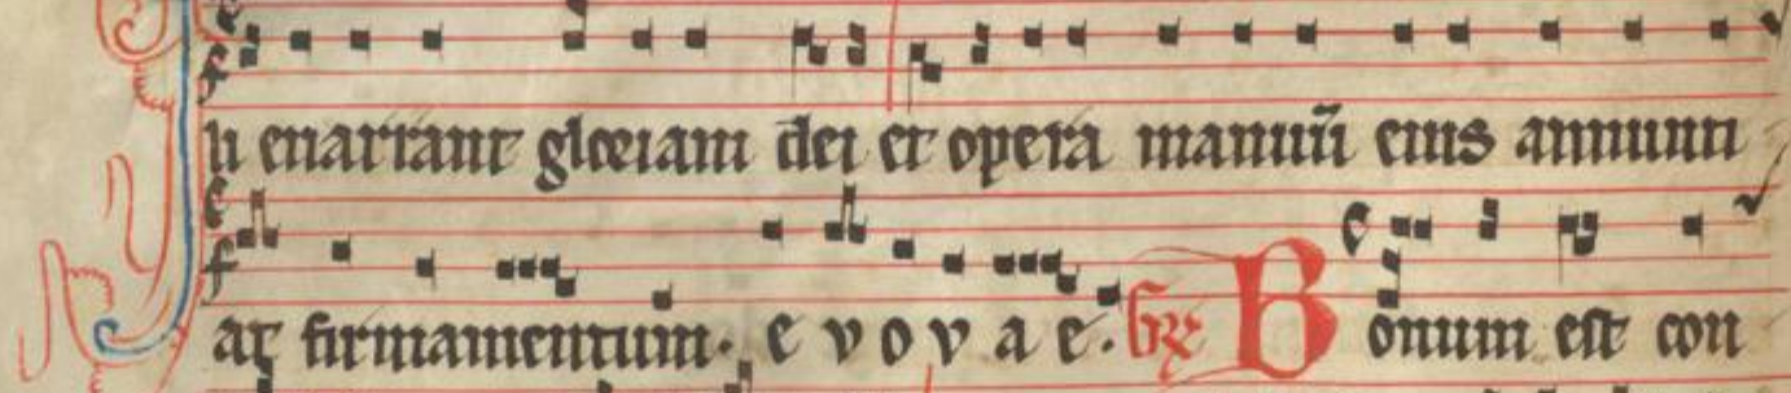 li enarrant gloriam dei et opera manuũ eius annunti
at firmamentum. e v o v a e. Bonum est con